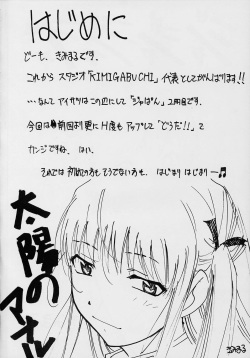 はじめに
どーも、きみまるです。
これから スタジオ「KIMIGABUCHI」代表としてがんばります!!
…なんて アイサツはこの辺にして「じゃぱん」2冊目です。
今回は前回より更に H度も アップして"どうだ!!"って
カンジですね、はい。
それでは 初めての方も そうでない方も、はじまり はじまり ー♫
太陽の
アナル
きみまる